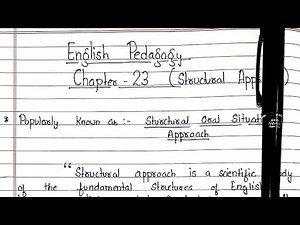 English Pedagogy
Chapter - 23 (Structural App
* Popularly known as :- Sturctural Oral Situat
Approach
“ Structural approach is a scientific
of the fundamental Structures of English